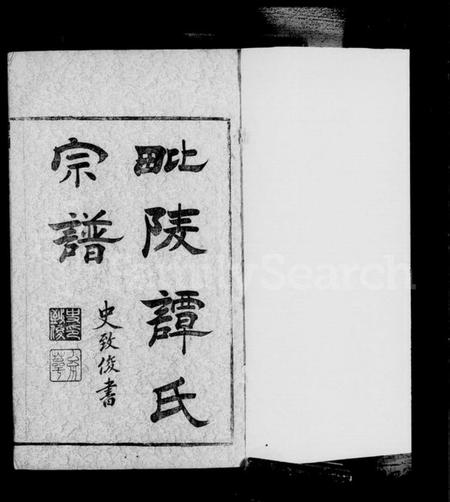 毗陵譚氏
宗譜
史致俊書
FamilySearch